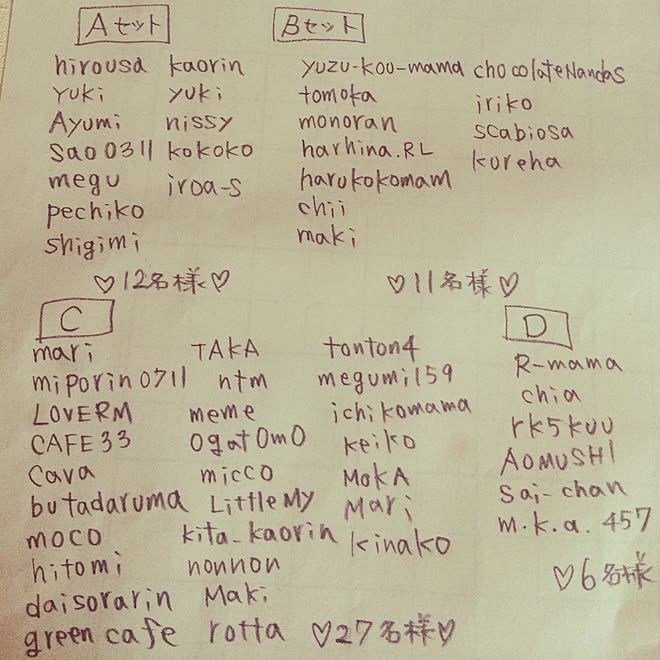 Aセット
hirousa kaorin
YUKi yuki
Ayumi nissy
Sao0311 kokoko
megu iroa-s
pechiko
shigimi
♡12名様♡
Bセット
yuzu-kou-mama chocolateNandaS
tomoka iriko
monoran scabiosa
harhina.RL kureha
harukokomam
chii
maki
♡11名様♡
C
mari TAKA tonton4
miporin0711 ntm megumi159
LOVERM meme ichikomama
CAFE33 OgatOmO keiko
Cava micco MOKA
butadaruma LittleMy Mari
moco kita_kaorin kinako
hitomi nonnon
daisorarin Maki
green cafe rotta ♡27名様♡
D
R-mama
chia
rk5kuu
AOMUSHI
Sai-chan
m.k.a.457
♡6名様